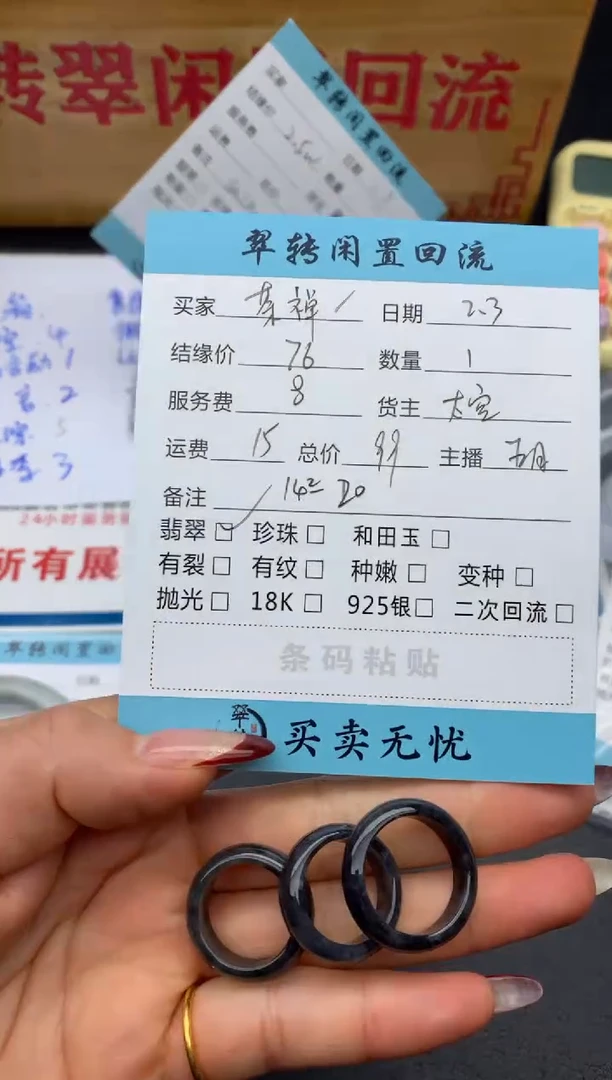 转翠闲置回流
翠转闲置回流
买家
日期
结缘价 2.5w
数量
翠转闲置回流
买家 日期 2.3
结缘价 76 数量 1
服务费 8 货主 太空
运费 15 总价 99 主播
备注 14² 20
翡翠☑ 珍珠□ 和田玉□
有裂□ 有纹□ 种嫩□ 变种□
抛光□ 18K□ 925银□ 二次回流□
条码粘贴
买卖无忧
4
1
2
5
3
24小时
所有展
翠转闲置回